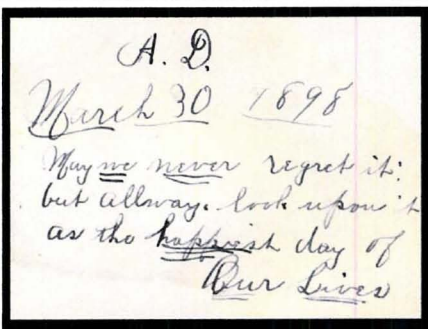 A. D.
March 30 1898
May we never regret it;
but allways look upon it
as the happiest day of
Our Lives